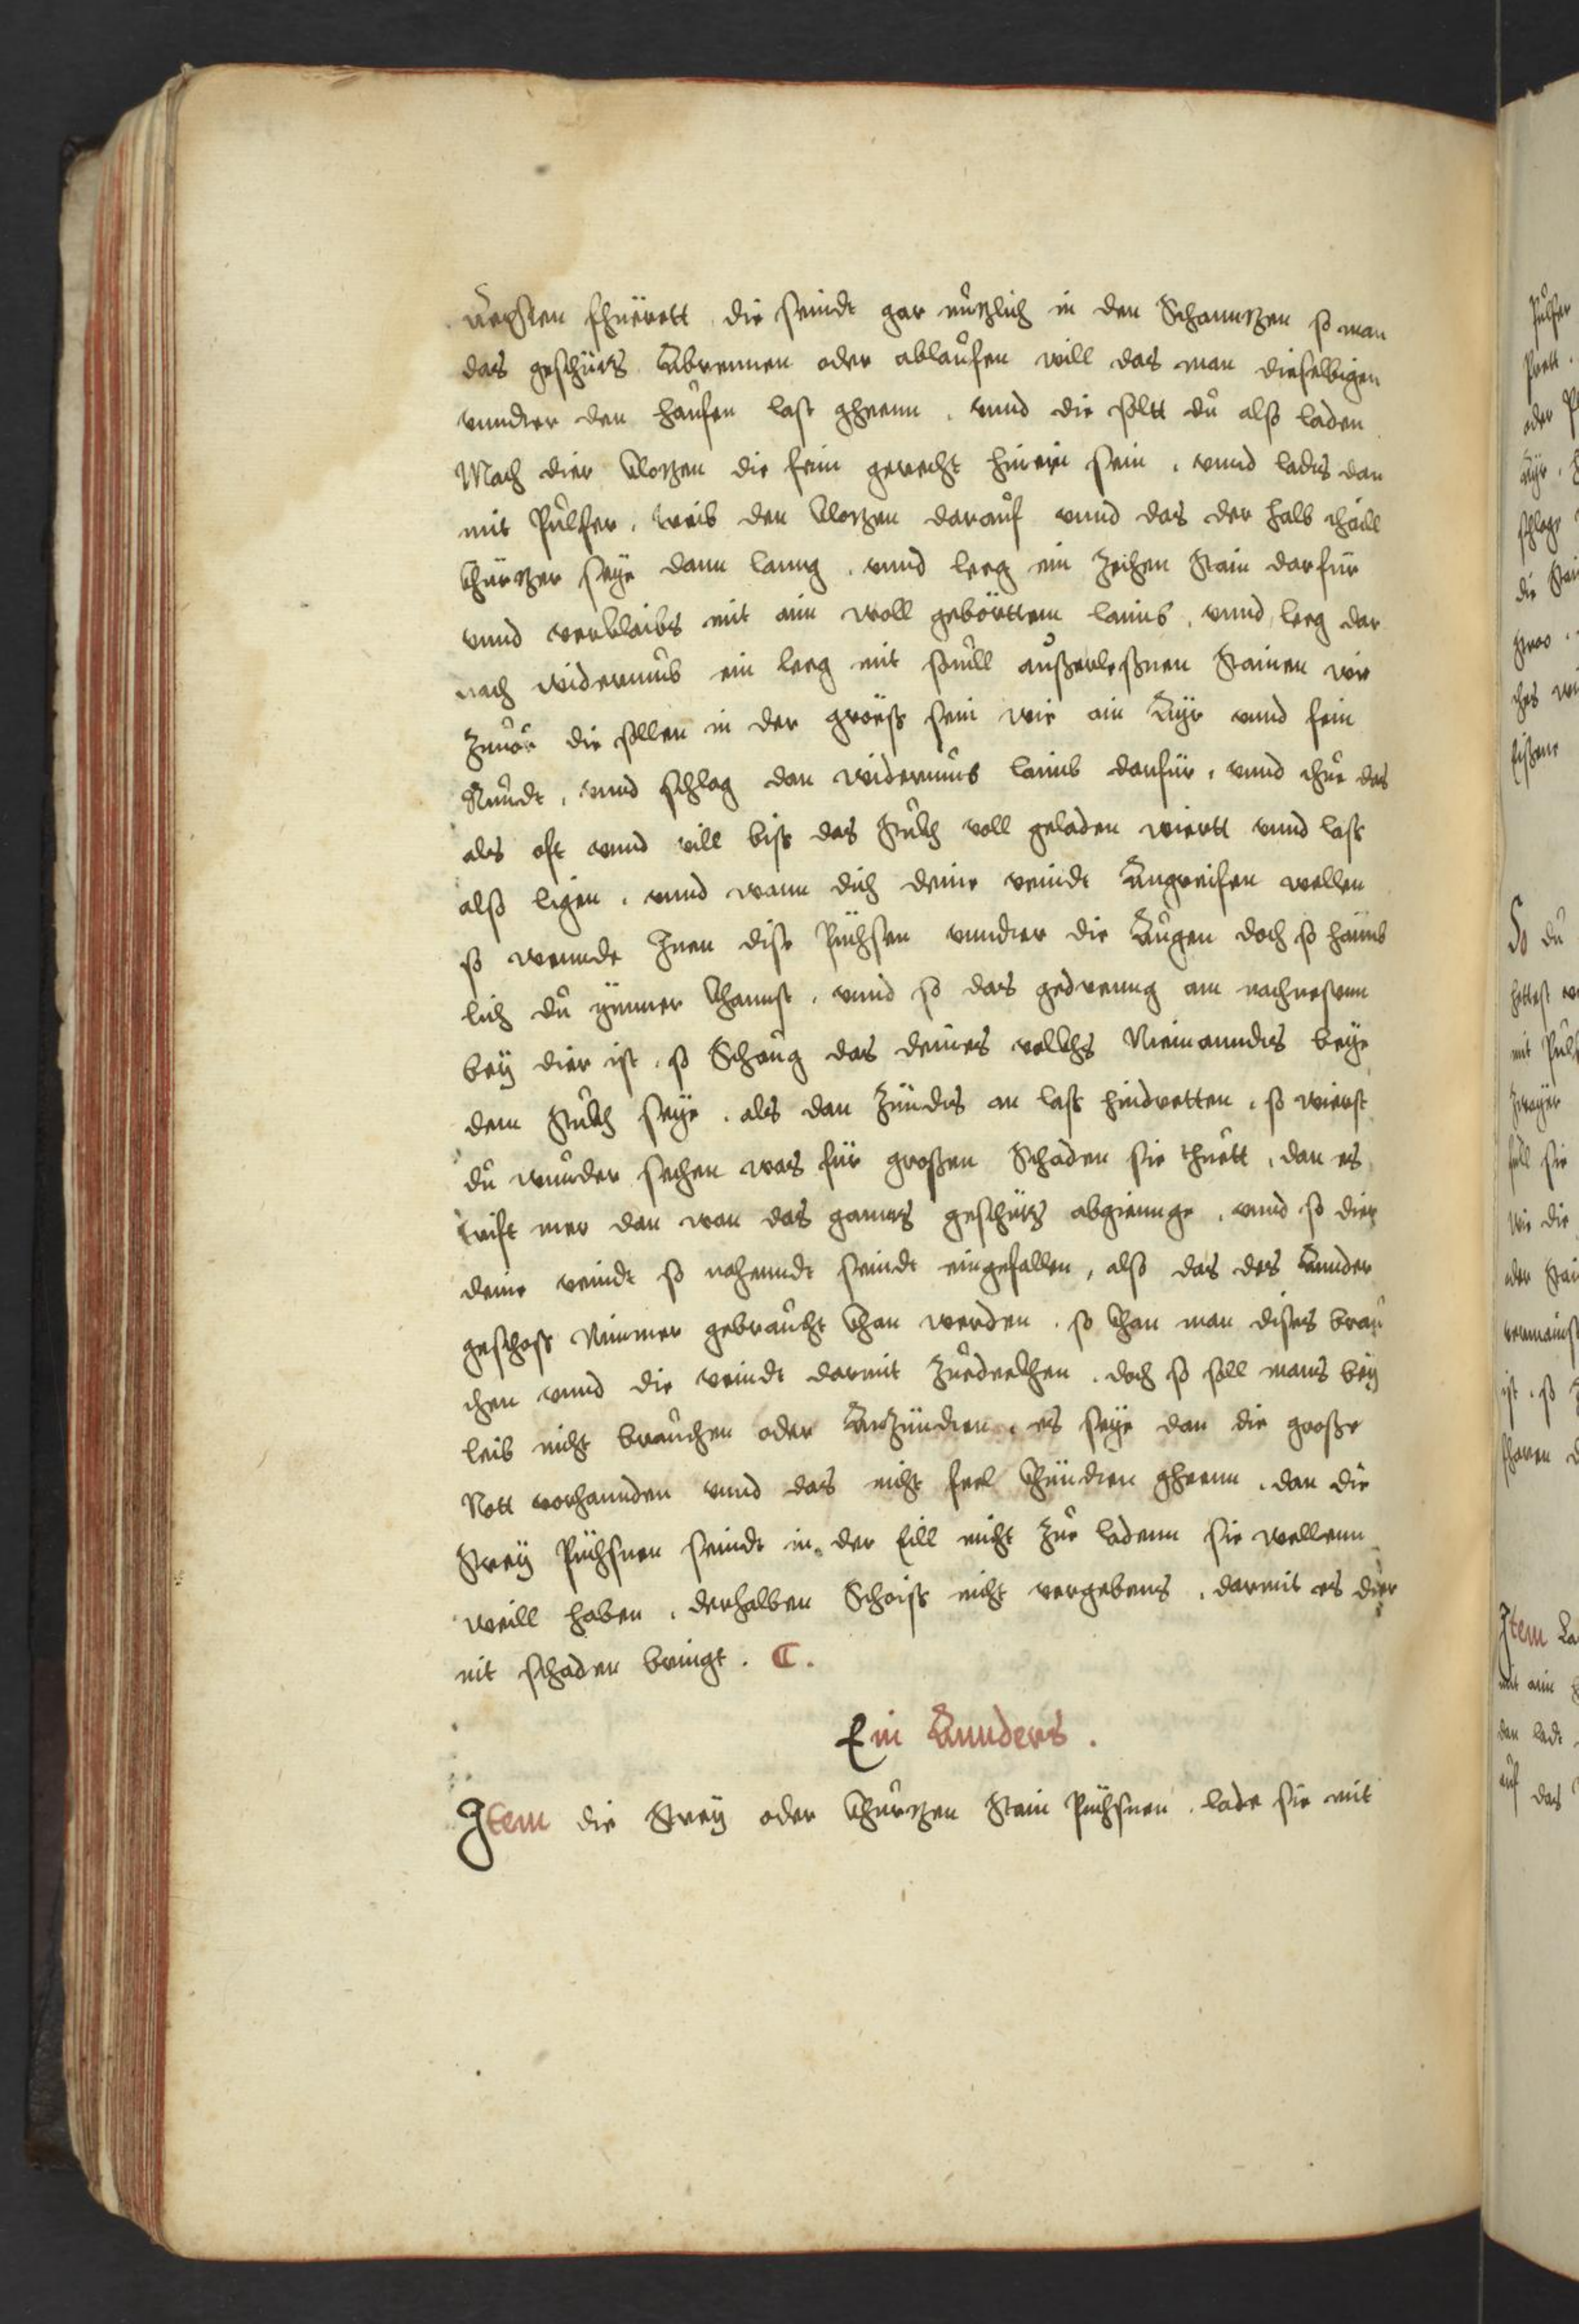 fhuerett die seindt gar nuzlich in den Schanntzen so man
das geschütz Abrennen oder ablaufen will das man dieselbigen
vnnder den haufen last gheenn . vnnd die soltt du also laden
Mach dier Klozen die fein gerecht hinein sein . vnnd lads dan
mit Pulfer . treib den Klotzen darauf vnnd das der halb thaill
Khürtzer seye dann lanng . vnnd leeg ein Zechen Stain darfür
vnnd verkleibs mit ain woll gebörttem laimb . vnnd leeg dar
nach widerumb ein leeg mit souill außerleßnen Stainen wie
Zuuor die sollen in der gröess sein wie ain Ayr vnnd fein
Rundt . vnnd schlag dan widerumb laimb darfür . vnnd thue das
als oft vnnd vill biss das Stukh voll geladen wiertt vnnd lass
also ligen . vnnd wann dich deine veindt Angreifen wellen
so wennde Inen dise Püchsen vnnder die Augen doch so haimb
lich du ymmer khannst . vnnd so das gedrenng am nachnesten
bey dier ist . so Schaug das deines vollkhs Niemanndts beye
dem Stukh seye . als dan Zündts an lass hindretten . so wierst
du wunder sechen was für großen Schaden sie thuett . dan es
trift mer dan wan das gannz geschütz abgiennge . vnnd so dier
deine veindt so nahenndt seindt eingefallen , also das des Annder
geschoss Nimmer gebraucht khan werden . so khan man dises brau
chen vnnd die veindt darmit Zuedeckhen . doch so soll mans bey
leib nicht brauchen oder Anzündten . es seye dan die große
Nott vorhannden vnnd das nicht feel khündten gheenn . dan die
Strey Püchsnen seindt in der Eill nicht Zue ladenn sie wellenn
weill haben . derhalben Schaiss nicht vergebens . darmit es dier
nit schaden bringt . C .
Ein Annders .
Item die Strey oder khurtzen Stain Püchsnen . lade sie mit